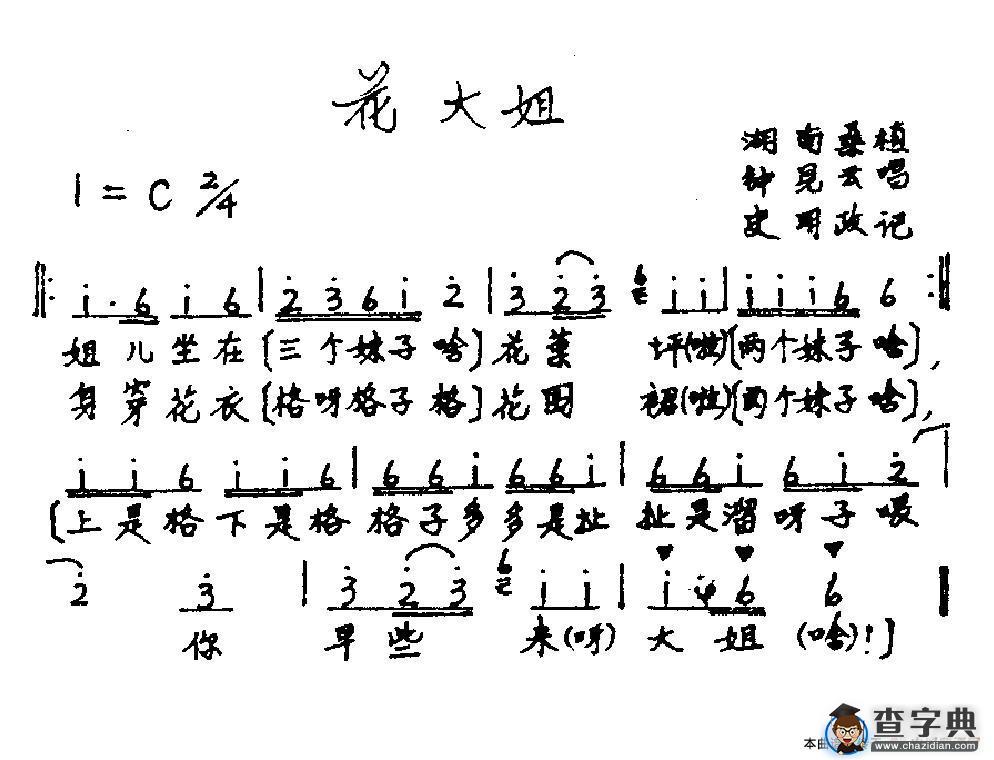 花大姐
湖南桑植
钟昆云唱
史明政记
1 = C 2/4
1· 6 1 6 | 2 3 6 1 2 | 3 2 3 6 1 1 | 1 1 1 6 6
姐儿坐在〔三个妹子啥〕花葉坪(啦)〔两个妹子啥〕,
身穿花衣〔格呀格子格〕花围裙(啦)〔两个妹子啥〕,
1 1 6 1 1 6 | 6 6 1 6 6 1 | 6 6 1 6 1 2
〔上是格下是格格子多多是扯扯是溜呀子喂
2 3 | 3 2 3 6 1 1 | 1 6 6
你早些来(呀)大姐(啥)!〕
查字典
www.chazidian.com
本曲